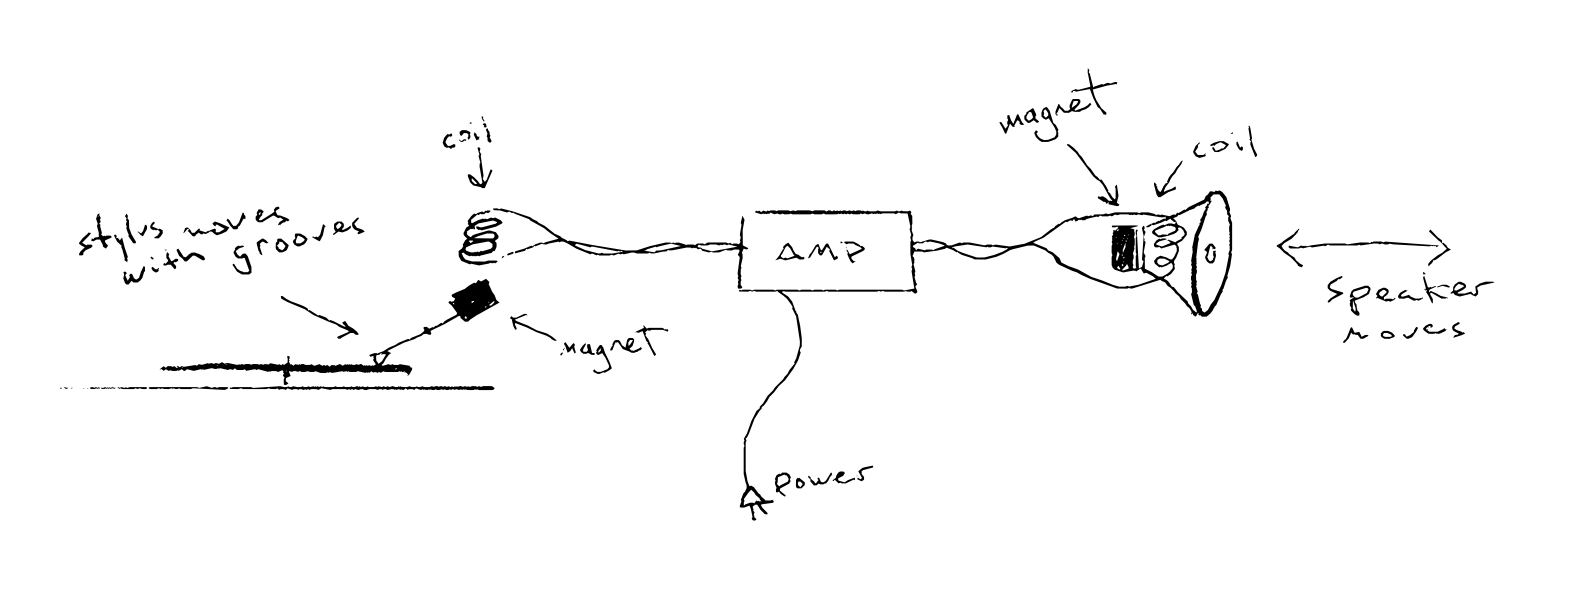 coil
stylus moves
with grooves
magnet
AMP
Power
magnet
coil
speaker
moves